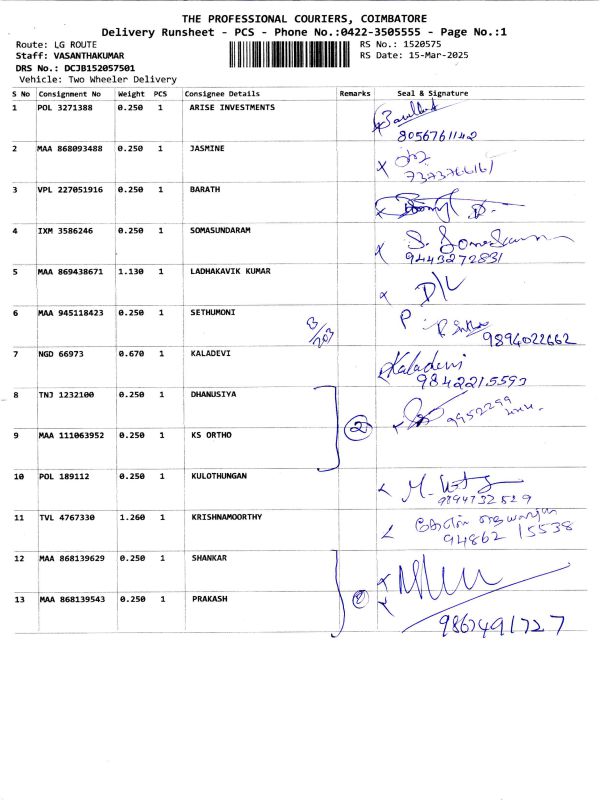 THE PROFESSIONAL COURIERS, COIMBATORE
Delivery Runsheet - PCS - Phone No.:0422-3505555 - Page No.:1
Route: LG ROUTE RS No.: 1520575
Staff: VASANTHAKUMAR RS Date: 15-Mar-2025
DRS No.: DCJB152057501
Vehicle: Two Wheeler Delivery
S No Consignment No Weight PCS Consignee Details Remarks Seal & Signature
1 POL 3271388 0.250 1 ARISE INVESTMENTS
8056761142
2 MAA 868093488 0.250 1 JASMINE
7373766161
3 VPL 227051916 0.250 1 BARATH
4 IXM 3586246 0.250 1 SOMASUNDARAM
9443272831
5 MAA 869438671 1.130 1 LADHAKAVIK KUMAR
D/L
6 MAA 945118423 0.250 1 SETHUMONI P
B/203 9894022662
7 NGD 66973 0.670 1 KALADEVI Kaladevi
9842215593
8 TNJ 1232100 0.250 1 DHANUSIYA
9952299
2
9 MAA 111063952 0.250 1 KS ORTHO
10 POL 189112 0.250 1 KULOTHUNGAN
9894732529
11 TVL 4767330 1.260 1 KRISHNAMOORTHY
94862 15538
12 MAA 868139629 0.250 1 SHANKAR
2
13 MAA 868139543 0.250 1 PRAKASH
9867491727